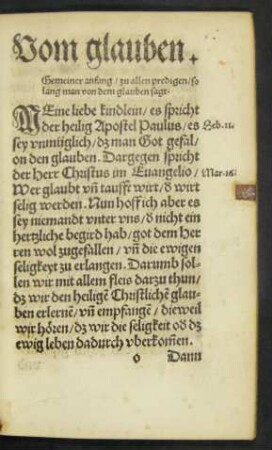 Vom glauben.
Gemeiner anfang / zu allen predigen / so
lang man von dem glauben sagt.
MEine liebe kindlein / es spricht
der heilig Apostel Paulus / es Heb. 11.
sey vnmüglich / dz man Got gefal /
on den glauben. Dargegen spricht
der Herr Christus im Euangelio / Mar. 16.
Wer glaubt vñ taufft wirt / d wirt
selig werden. Nun hoff ich aber es
sey niemandt vnter vns / d nicht ein
hertzliche begird hab / got dem Her
ren wol zugefallen / vñ die ewigen
seligkeyt zu erlangen. Darumb sol-
len wir mit allem fleis darzu thun /
dz wir den heiligē Christlichē glau-
ben erlernē / vñ empfangē / dieweil
wir hören / dz wir die seligkeit od dz
ewig leben dadurch vberkom̄en.
o Dann